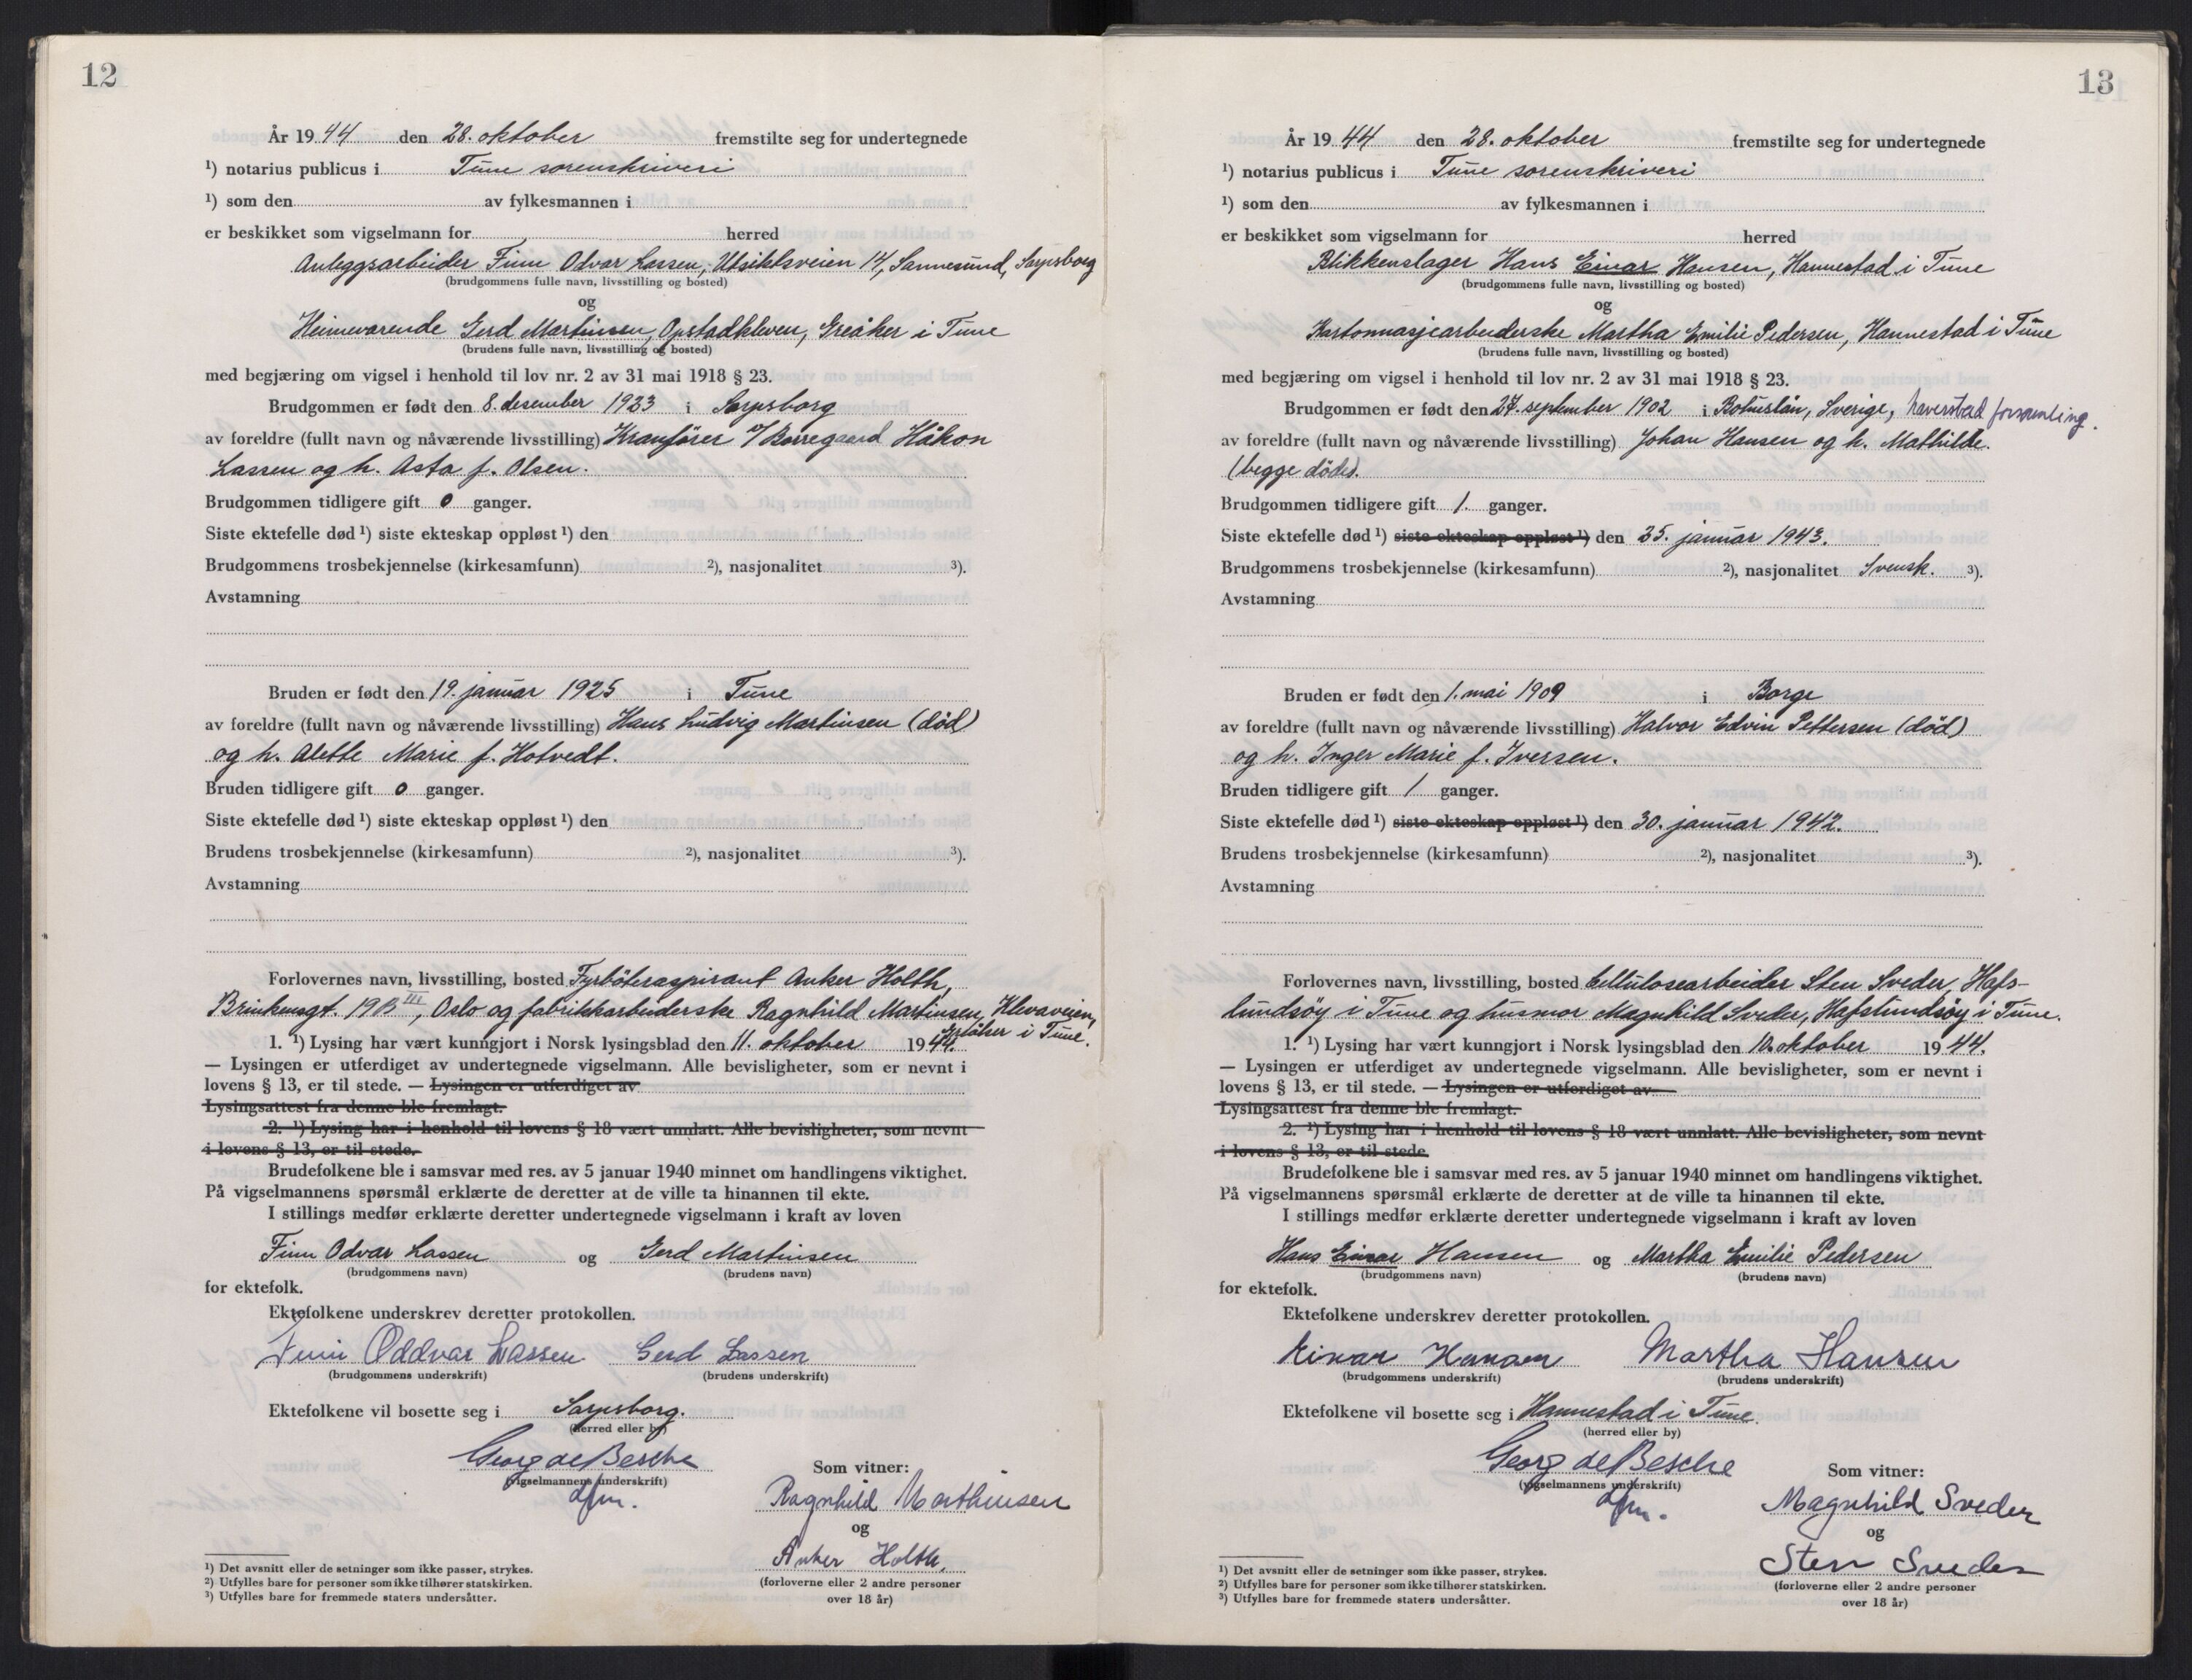 12
År 1944 den 28. oktober fremstilte seg for undertegnede
¹) notarius publicus i Tune sorenskriveri
¹) som den av fylkesmannen i
er beskikket som vigselmann for herred
Anleggsarbeider Finn Odvar Lassen, Utsiktsveien 14, Sannesund, Sarpsborg
(brudgommens fulle navn, livsstilling og bosted)
og
Heimeværende Gerd Martinsen, Opstadkleven, Greåker i Tune
(brudens fulle navn, livsstilling og bosted)
med begjæring om vigsel i henhold til lov nr. 2 av 31 mai 1918 § 23.
Brudgommen er født den 8. desember 1923 i Sarpsborg
av foreldre (fullt navn og nåværende livsstilling) Kranfører v/ Borregaard Håkon
Lassen og h. Asta f. Olsen.
Brudgommen tidligere gift 0 ganger.
Siste ektefelle død ¹) siste ekteskap oppløst ¹) den
Brudgommens trosbekjennelse (kirkesamfunn) ²), nasjonalitet ³).
Avstamning
Bruden er født den 19. januar 1925 i Tune
av foreldre (fullt navn og nåværende livsstilling) Hans Ludvig Martinsen (död)
og h. Alette Marie f. Hotvedt.
Bruden tidligere gift 0 ganger.
Siste ektefelle død ¹) siste ekteskap oppløst ¹) den
Brudens trosbekjennelse (kirkesamfunn) ²), nasjonalitet ³).
Avstamning
Forlovernes navn, livsstilling, bosted Fyrböteraspirant Anker Holth,
Brinkensgt. 19B III, Oslo og fabrikkarbeiderske Ragnhild Martinsen, Klevaveien,
Greåker i Tune.
1. ¹) Lysing har vært kunngjort i Norsk lysingsblad den 11. oktober 1944.
— Lysingen er utferdiget av undertegnede vigselmann. Alle bevisligheter, som er nevnt i
lovens § 13, er til stede. — Lysingen er utferdiget av
Lysingsattest fra denne ble fremlagt.
2. ¹) Lysing har i henhold til lovens § 18 vært unnlatt. Alle bevisligheter, som nevnt
i lovens § 13, er til stede.
Brudefolkene ble i samsvar med res. av 5 januar 1940 minnet om handlingens viktighet.
På vigselmannens spørsmål erklærte de deretter at de ville ta hinannen til ekte.
I stillings medfør erklærte deretter undertegnede vigselmann i kraft av loven
Finn Odvar Lassen og Gerd Martinsen
(brudgommens navn) (brudens navn)
for ektefolk.
Ektefolkene underskrev deretter protokollen.
Finn Oddvar Lassen Gerd Lassen
(brudgommens underskrift) (brudens underskrift)
Ektefolkene vil bosette seg i Sarpsborg.
(herred eller by)
Georg de Besche
(vigselmannens underskrift)
dfm.
Som vitner:
Ragnhild Marthinsen
og
Anker Holth,
(forloverne eller 2 andre personer
over 18 år)
¹) Det avsnitt eller de setninger som ikke passer, strykes.
²) Utfylles bare for personer som ikke tilhører statskirken.
³) Utfylles bare for fremmede staters undersåtter.
13
År 1944 den 28. oktober fremstilte seg for undertegnede
¹) notarius publicus i Tune sorenskriveri
¹) som den av fylkesmannen i
er beskikket som vigselmann for herred
Blikkenslager Hans Einar Hansen, Hannestad i Tune
(brudgommens fulle navn, livsstilling og bosted)
og
Kartonnasjearbeiderske Martha Emilie Pedersen, Hannestad i Tune
(brudens fulle navn, livsstilling og bosted)
med begjæring om vigsel i henhold til lov nr. 2 av 31 mai 1918 § 23.
Brudgommen er født den 27. september 1902 i Bohuslän, Sverige, Naverstad forsamling.
av foreldre (fullt navn og nåværende livsstilling) Johan Hansen og h. Mathilde.
(begge döde).
Brudgommen tidligere gift 1. ganger.
Siste ektefelle død ¹) siste ekteskap oppløst ¹) den 25. januar 1943.
Brudgommens trosbekjennelse (kirkesamfunn) ²), nasjonalitet Svensk. ³).
Avstamning
Bruden er født den 1. mai 1909 i Borge
av foreldre (fullt navn og nåværende livsstilling) Halvor Edvin Pettersen (död)
og h. Inger Marie f. Iversen.
Bruden tidligere gift 1 ganger.
Siste ektefelle død ¹) siste ekteskap oppløst ¹) den 30. januar 1942.
Brudens trosbekjennelse (kirkesamfunn) ²), nasjonalitet ³).
Avstamning
Forlovernes navn, livsstilling, bosted Cellulosearbeider Sten Sveder, Hafs-
lundsöy i Tune og husmor Magnhild Sveder, Hafslundsöy i Tune.
1. ¹) Lysing har vært kunngjort i Norsk lysingsblad den 10. oktober 1944.
— Lysingen er utferdiget av undertegnede vigselmann. Alle bevisligheter, som er nevnt i
lovens § 13, er til stede. — Lysingen er utferdiget av
Lysingsattest fra denne ble fremlagt.
2. ¹) Lysing har i henhold til lovens § 18 vært unnlatt. Alle bevisligheter, som nevnt
i lovens § 13, er til stede.
Brudefolkene ble i samsvar med res. av 5 januar 1940 minnet om handlingens viktighet.
På vigselmannens spørsmål erklærte de deretter at de ville ta hinannen til ekte.
I stillings medfør erklærte deretter undertegnede vigselmann i kraft av loven
Hans Einar Hansen og Martha Emilie Pedersen
(brudgommens navn) (brudens navn)
for ektefolk.
Ektefolkene underskrev deretter protokollen.
Einar Hansen Martha Hansen
(brudgommens underskrift) (brudens underskrift)
Ektefolkene vil bosette seg i Hannestad i Tune.
(herred eller by)
Georg de Besche
(vigselmannens underskrift)
dfm.
Som vitner:
Magnhild Sveder
og
Sten Sveder
(forloverne eller 2 andre personer
over 18 år)
¹) Det avsnitt eller de setninger som ikke passer, strykes.
²) Utfylles bare for personer som ikke tilhører statskirken.
³) Utfylles bare for fremmede staters undersåtter.